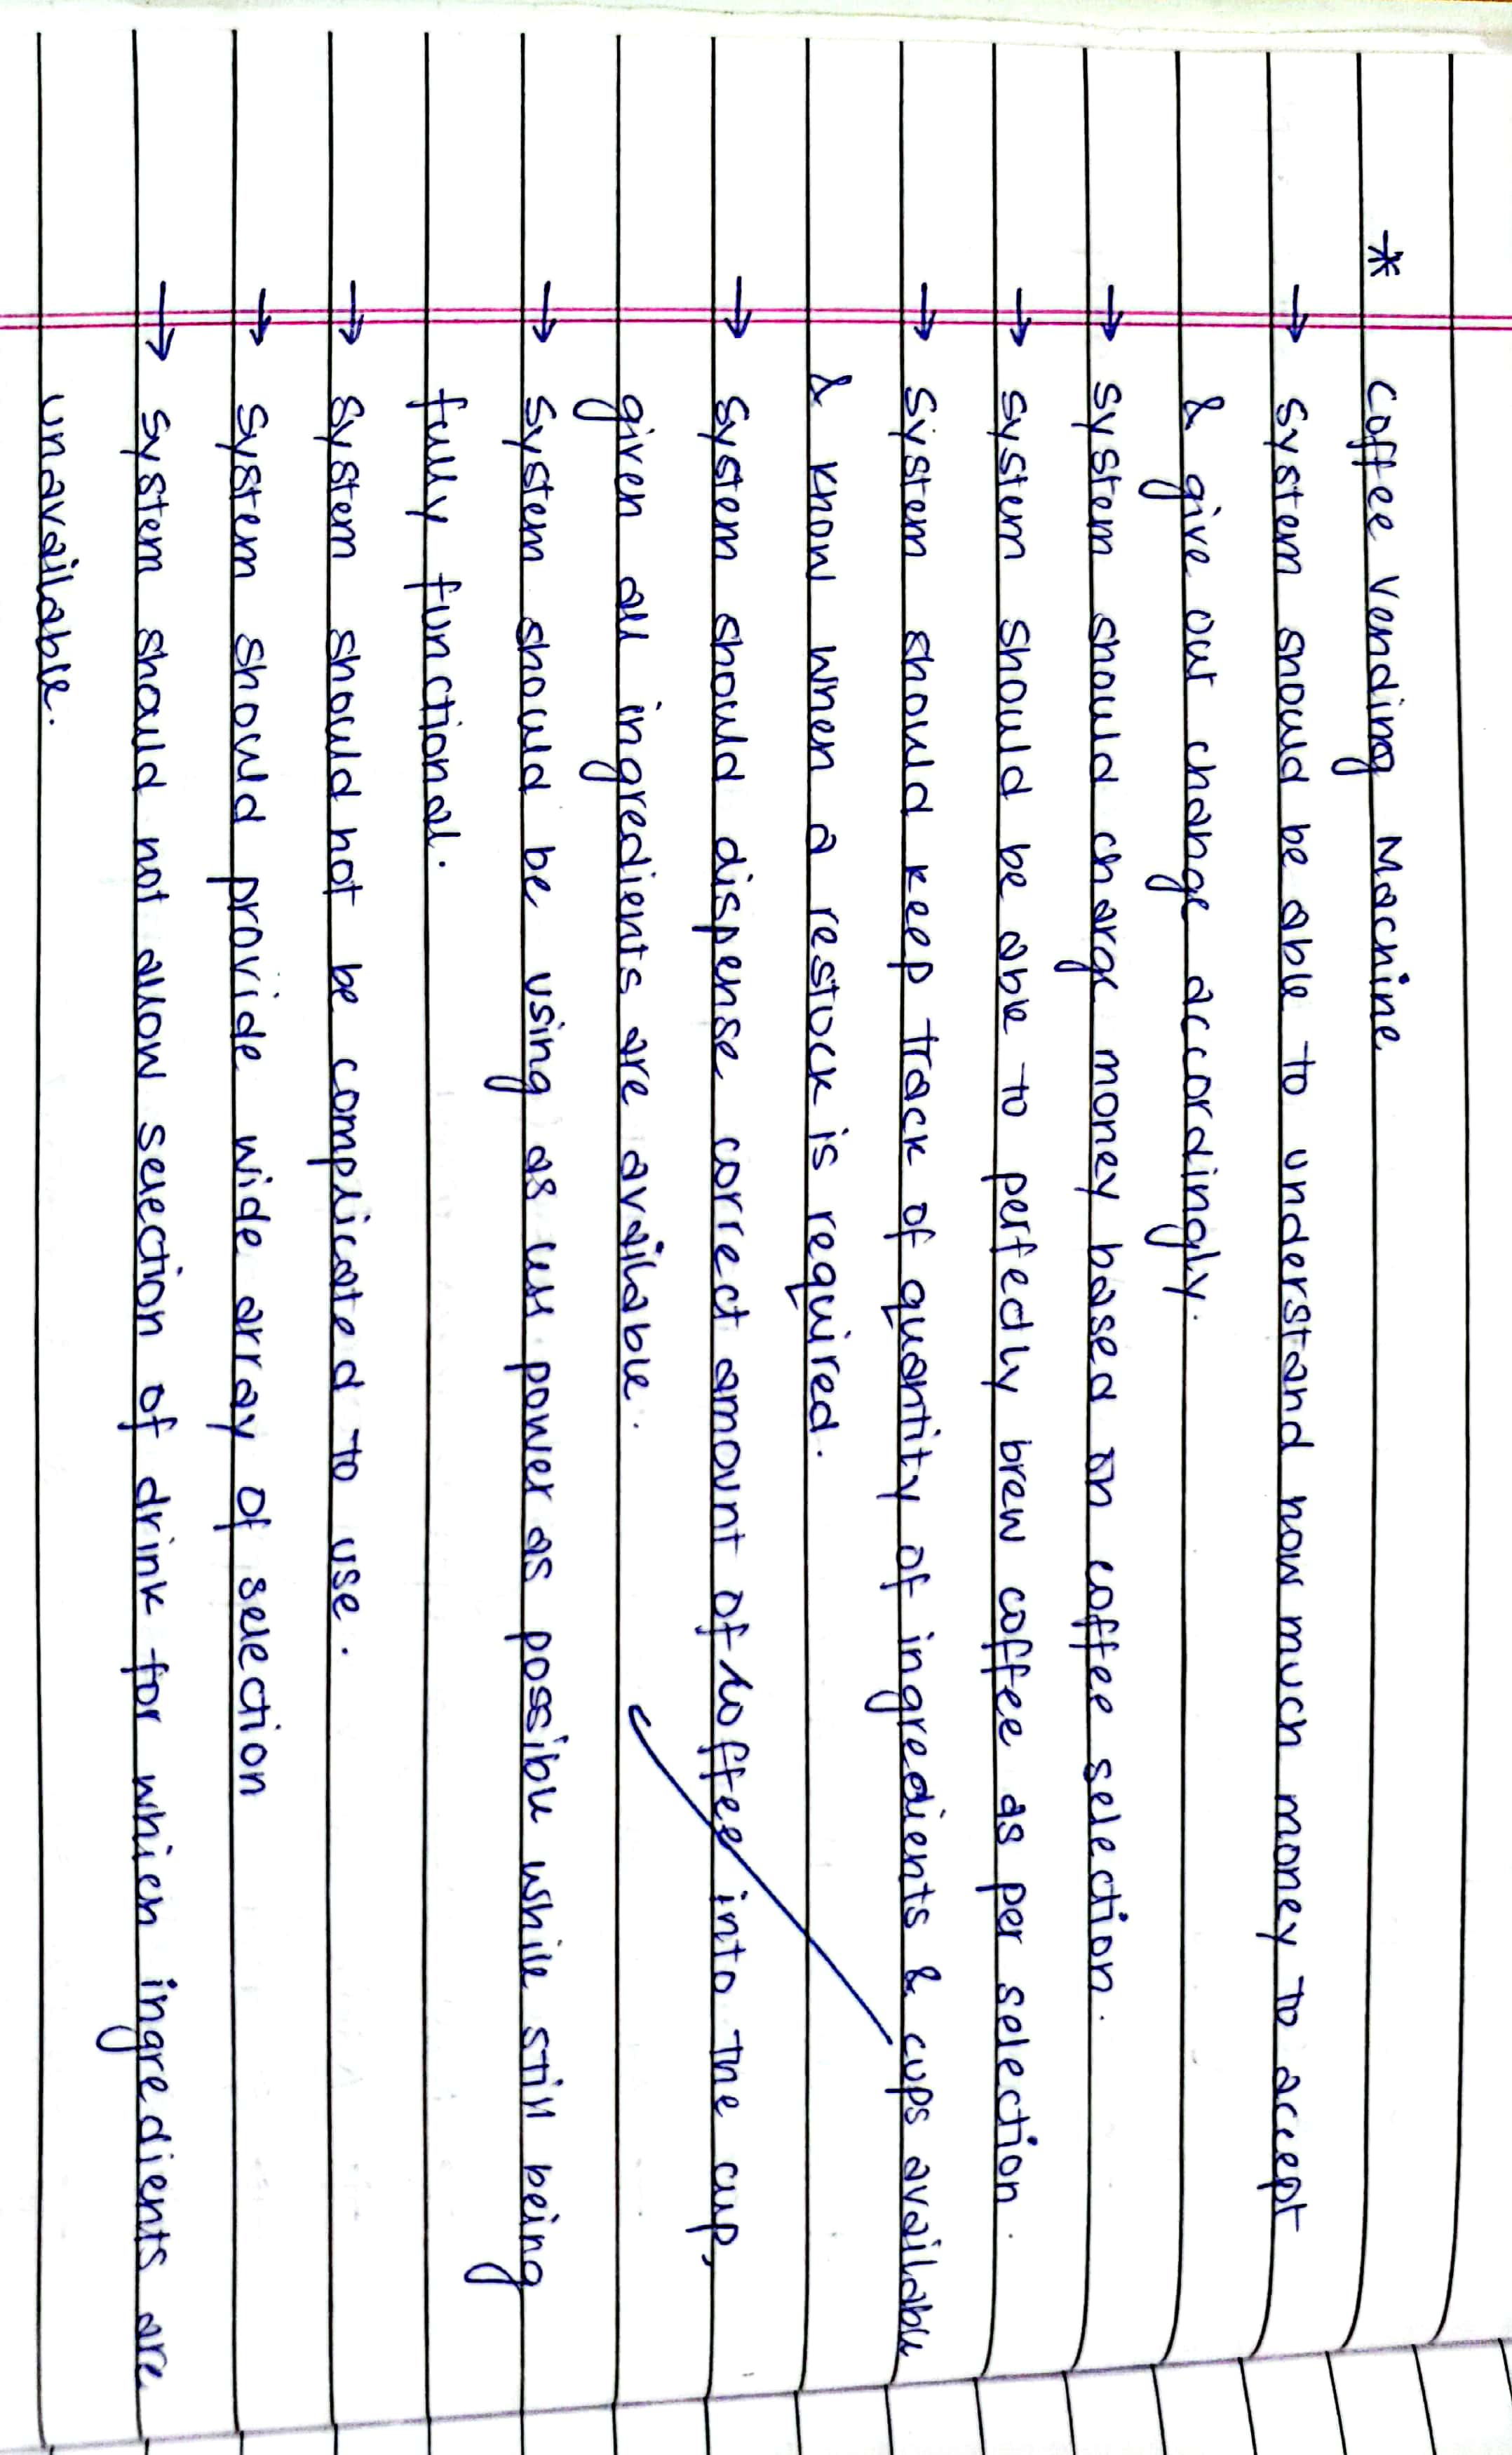 * Coffee Vending Machine
→ System should be able to understand how much money to accept
& give out change accordingly.
→ System should charge money based on coffee selection.
→ System should be able to perfectly brew coffee as per selection.
→ System should keep track of quantity of ingredients & cups available
& know when a restock is required.
→ System should dispense correct amount of coffee into the cup,
given all ingredients are available.
→ System should be using as less power as possible while still being
fully functional.
→ System should not be complicated to use.
→ System should provide wide array of selection
→ System should not allow selection of drink for which ingredients are
unavailable.